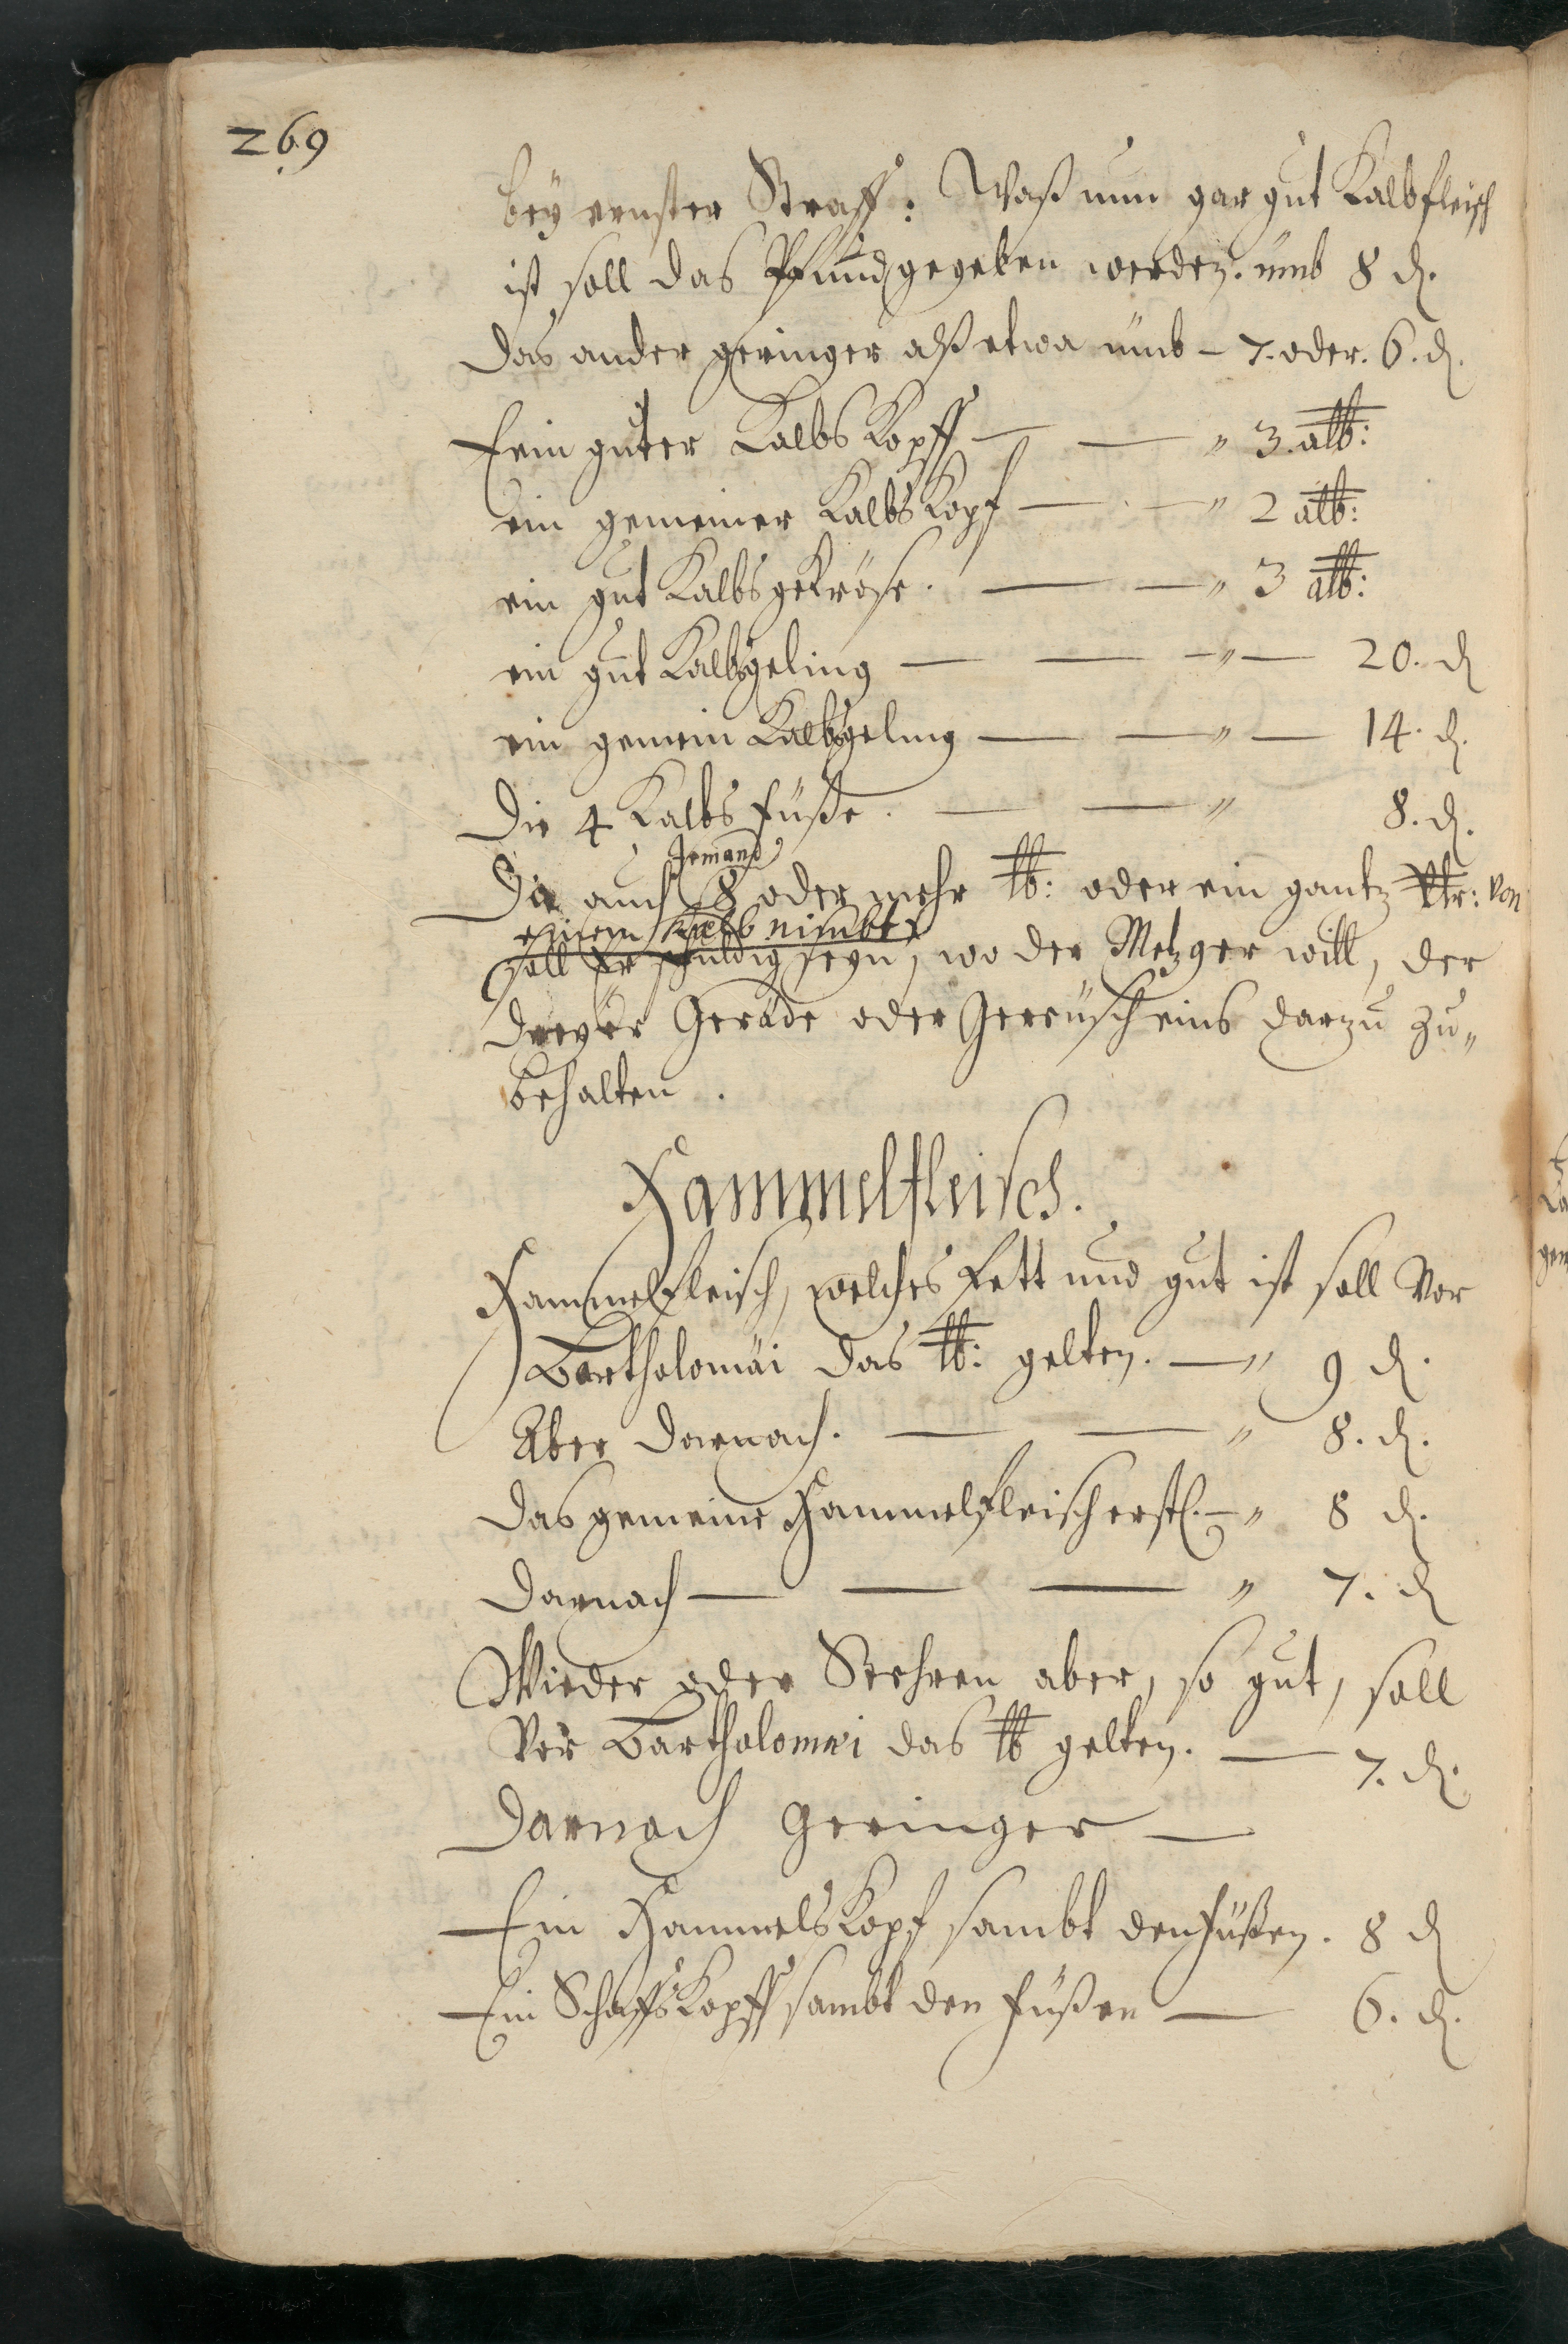 269
bey ernster Straff: Waß nun gar gut Kalbfleisch
ist soll das Pfund gegeben werden. umb 8 d.
das ander geringer alß etwa umb - 7. oder. 6. d.
Ein guter Kalbs Kopff — — " 3. alb:
ein gemeiner Kalbs Kopf — — " 2 alb:
ein gut Kalbsgekröse. — — " 3 alb:
ein gut Kalbsgeling — — " — 20. d
ein gemein Kalbsgeling — — " — 14. d.
Die 4 Kalbs füße. — — " 8. d.
Jemand
Da auch 8 oder mehr lb: oder ein gantz Vtr: von
einem Kalb nimbt,
soll Er schuldig seyn, wo der Metzger will, der
dreyer Geräde oder Gereusch eins darzu zu"
behalten.
Hammelfleisch.
Hammelfleisch, welches Fett und gut ist soll Vor
Bartholomäi das lb: gelten. — " 9 d.
Aber darnach. — — " 8. d.
das gemeine Hammelfleisch erstl. — " 8 d.
darnach — — — " 7. d
Wieder oder Stehren aber, so gut, soll
Vor Bartholomei das lb gelten. — 7. d.
darnach Geringer —
Ein Hammels Kopf sambt den Füßen. 8 d
Ein Schaffs Kopff sambt den Füßen — 6. d.